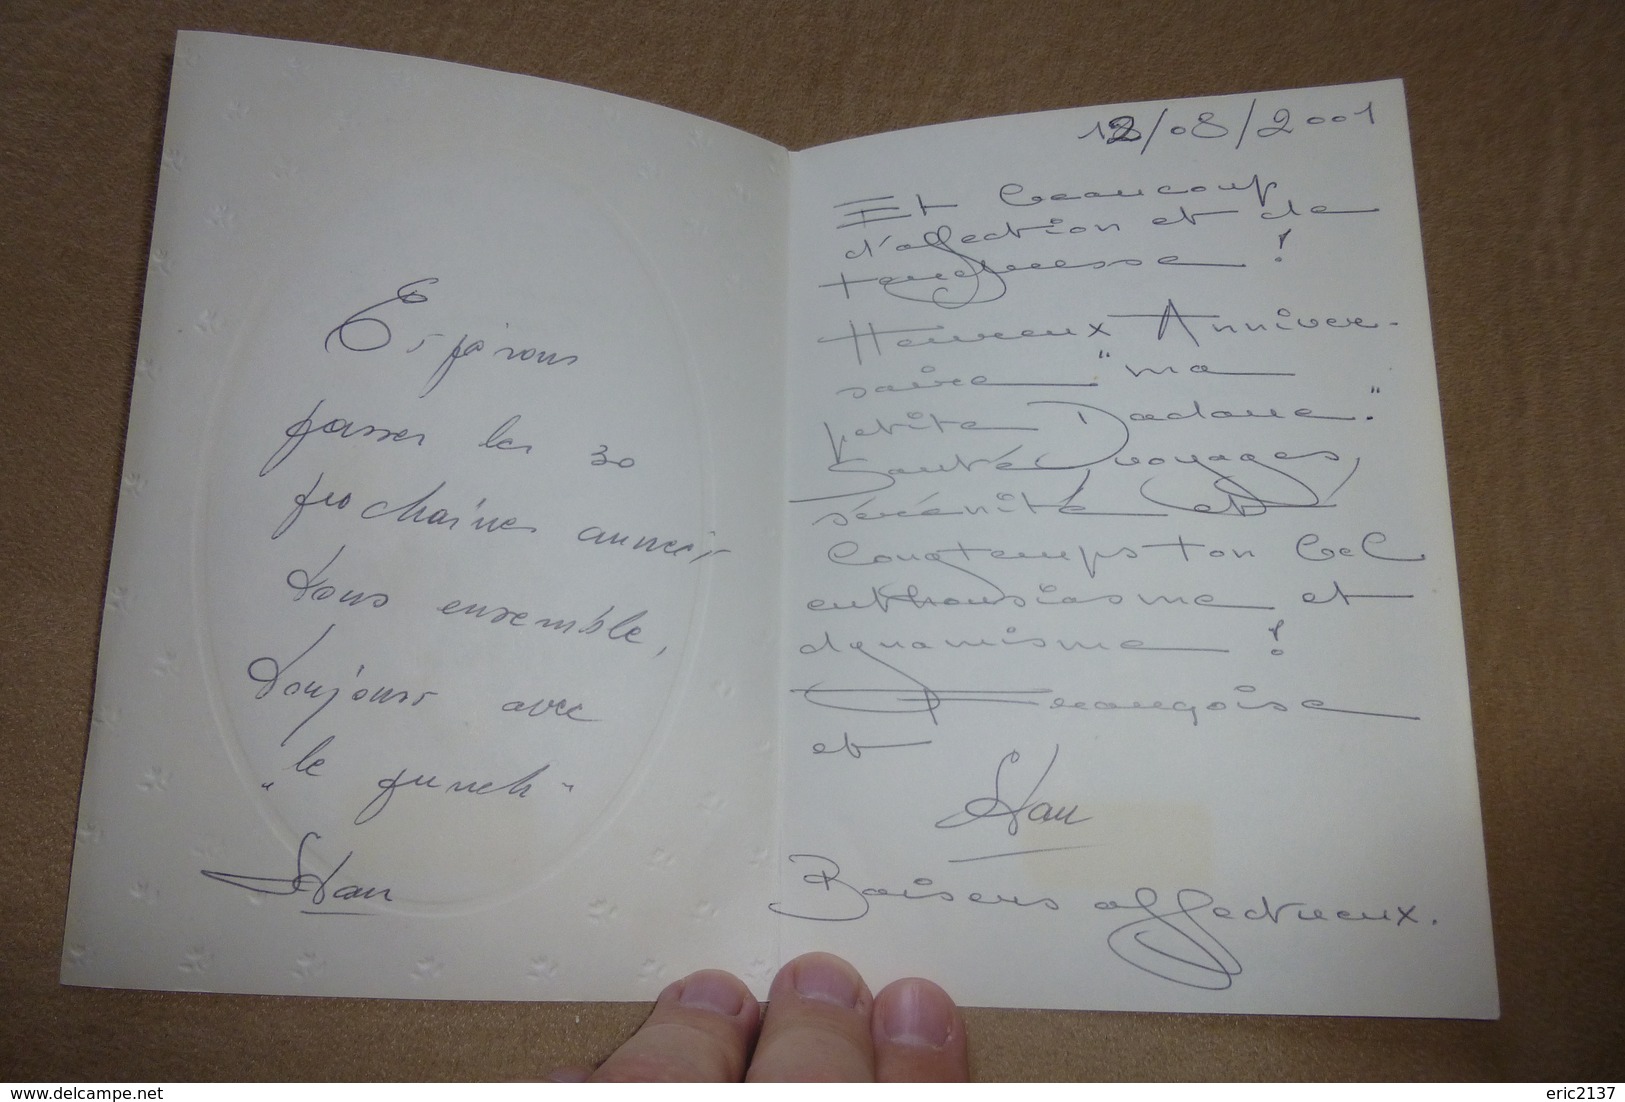 Espérons
passer les 30
prochaines années
tous ensemble,
toujours avec
"le punch"
Stan
12/08/2001
Et beaucoup
d'affection et de
tendresse !
Heureux Anniver-
saire "ma
petite Dadoue".
Santé, voyages,
sérénité et
longtemps ton bel
enthousiasme et
dynamisme !
Françoise
et
Stan
Baisers affectueux.
delcampe.net
eric2137